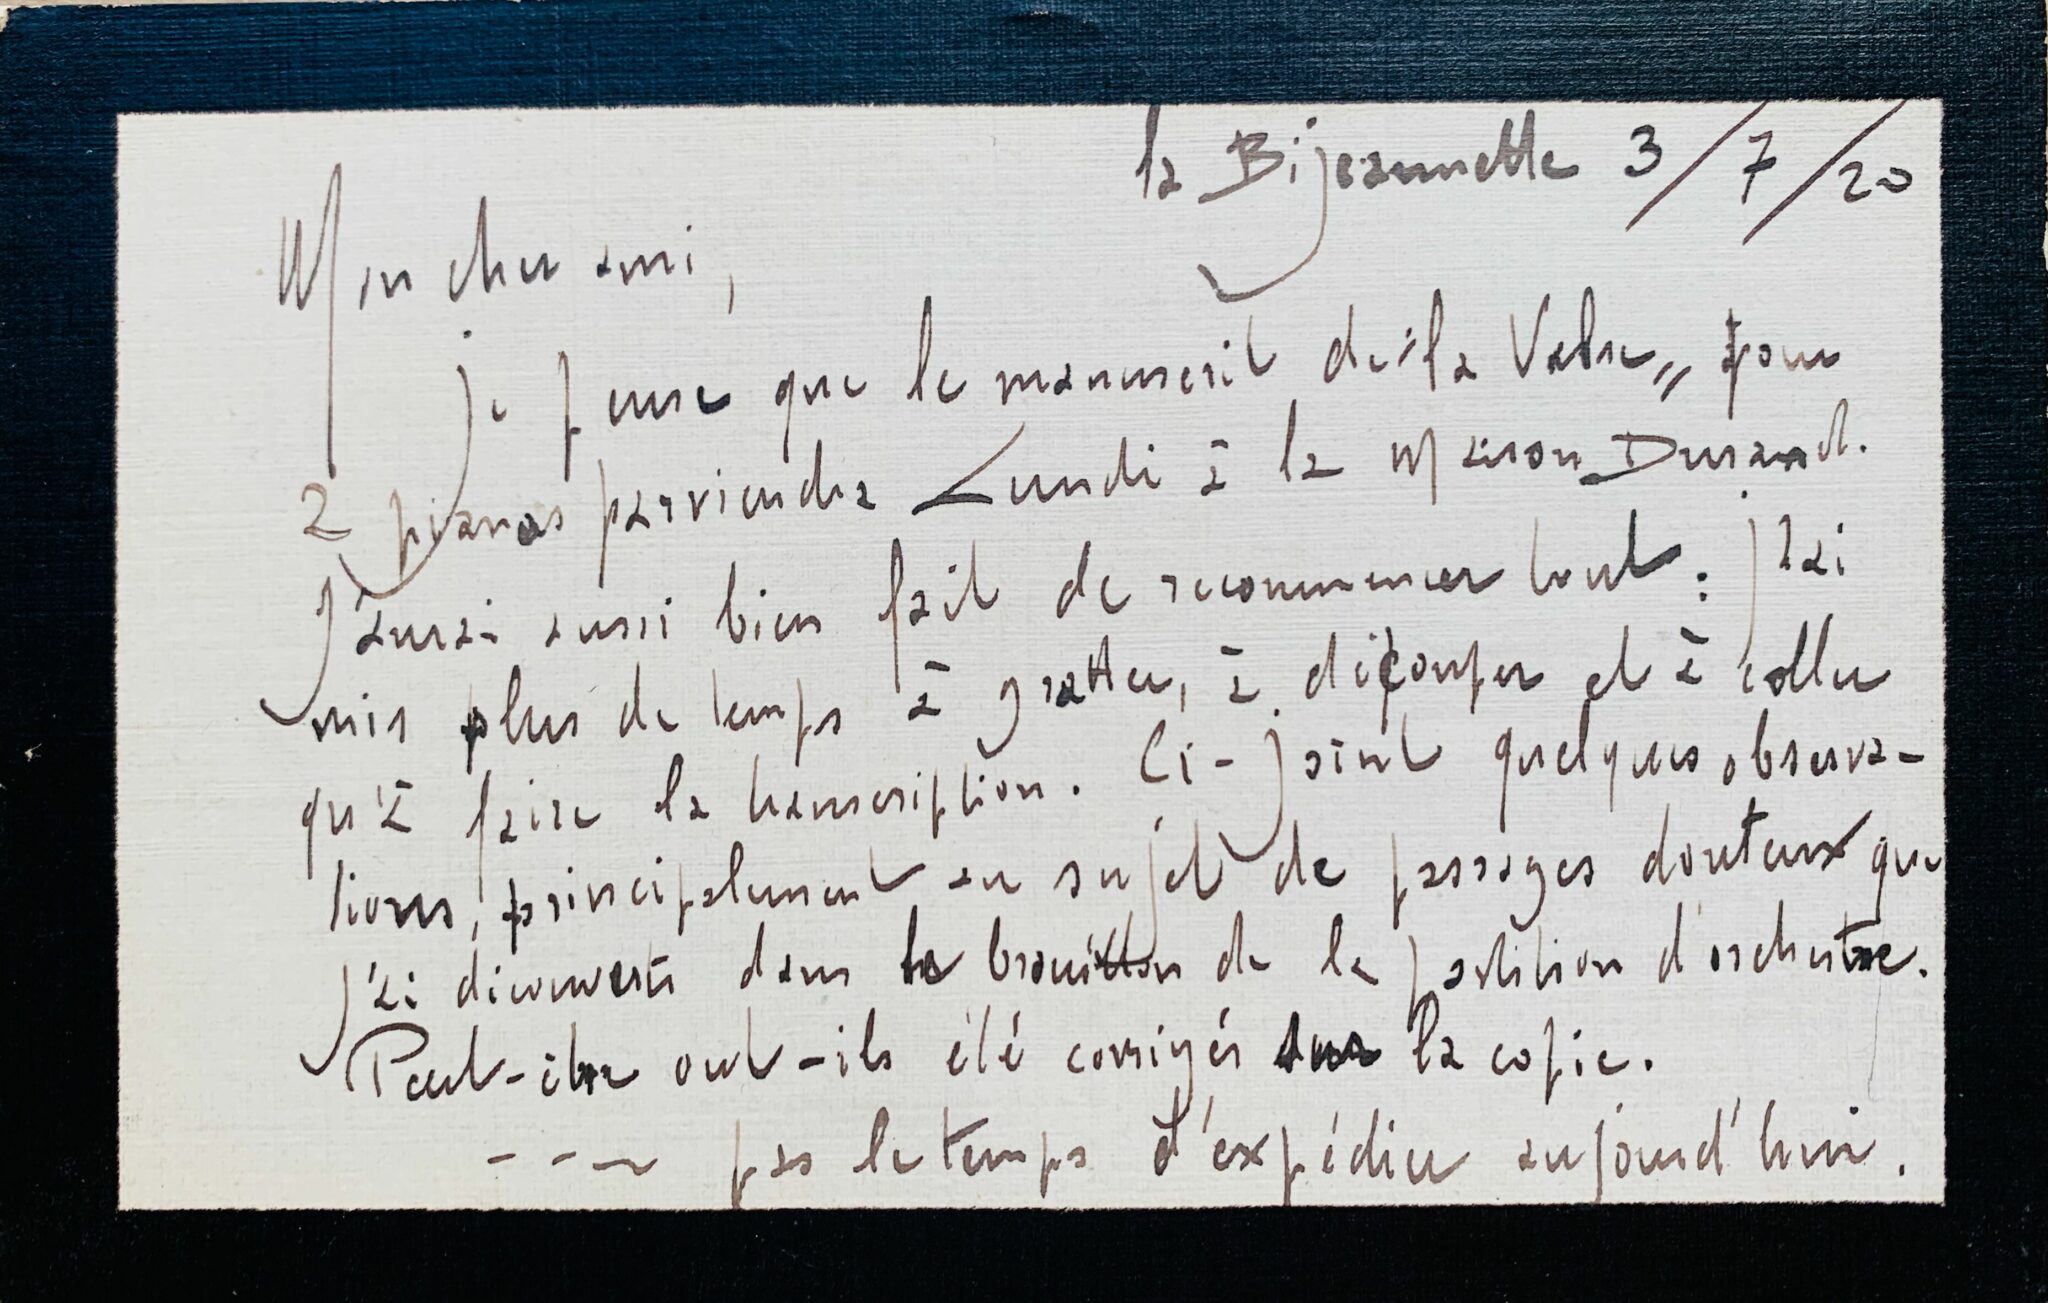 la Bijeannette 3/7/20
Mon cher ami,
je pense que le manuscrit de "la Valse" pour
2 pianos parviendra Lundi à la Maison Durand.
J'aurai aussi bien fait de recommencer tout: j'ai
mis plus de temps à gratter, à découper et à coller
qu'à faire la transcription. Ci-joint quelques observa-
tions, principalement au sujet de passages douteux que
j'ai découverts dans le brouillon de la partition d'orchestre.
Peut-être ont-ils été corrigés sur la copie.
--- pas le temps d'expédier aujourd'hui.